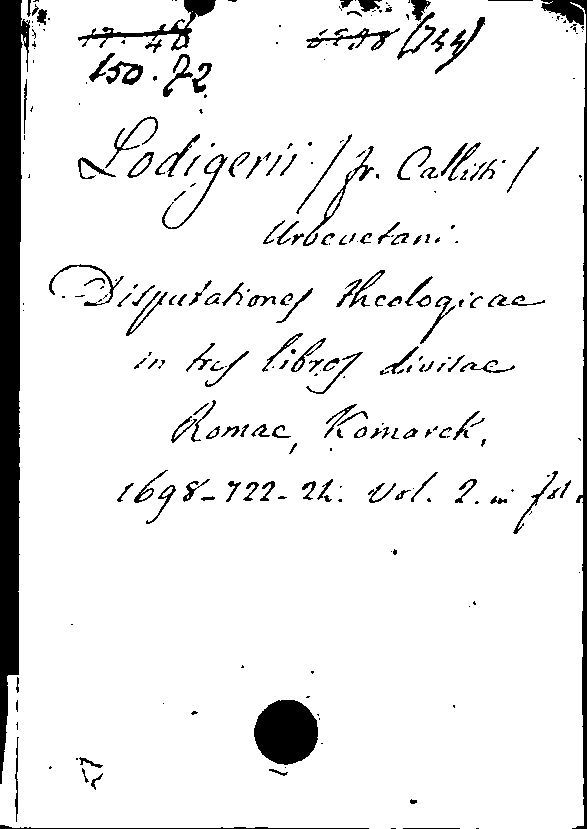 17. 48 (744)
150. 72
Lodigerii / fr. Callisti /
Urbevetani.
Disputationes theologicae
in tres libros divisae
Romae, Komarek,
1698-722-24. Vol. 2. in fol.